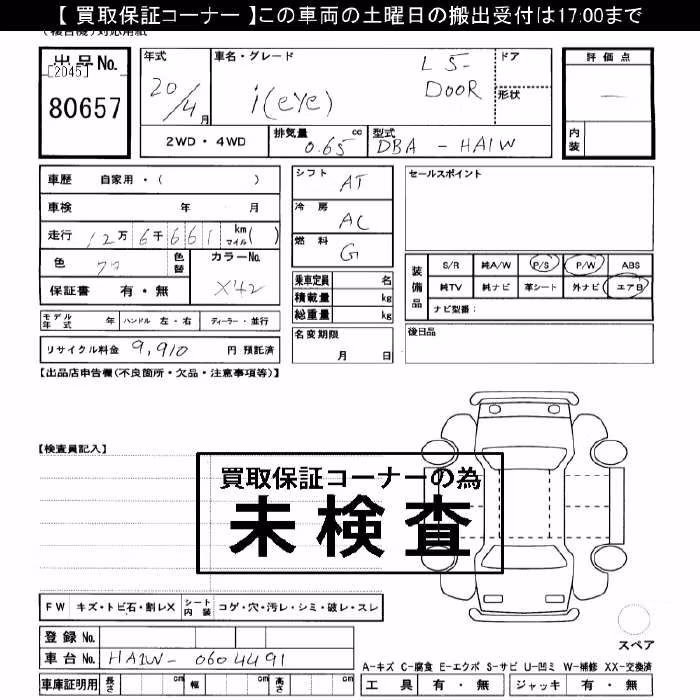 【 買取保証コーナー 】この車両の土曜日の搬出受付は17:00まで
出品No.
[2045]
80657
年式
20/4
月
車名・グレード
i(eye)
L 5-
DOOR
ドア
形状
評価点
—
内装
2WD・4WD
排気量
0.65
cc
型式
DBA - HA1W
車歴 自家用・( )
車検 年 月
走行 12万 6千 661 km マイル( )
色
色替
カラーNo.
X42
保証書 有・無
モデル年式 年 ハンドル 左・右 ディーラー・並行
リサイクル料金 9,910 円 預託済
シフト AT
冷房 AC
燃料 G
乗車定員 名
積載量 kg
総重量 kg
名変期限
月 日
セールスポイント
装備品
S/R 純A/W P/S P/W ABS
純TV 純ナビ 革シート 外ナビ エアB
ナビ型番:
後日品
【出品店申告欄(不良箇所・欠品・注意事項等)】
【検査員記入】
買取保証コーナーの為
未検査
FW キズ・トビ石・割レX シート内装 コゲ・穴・汚レ・シミ・破レ・スレ
登録No.
車台No. HA1W- 0604491
車庫証明用 長さ cm 幅 cm 高さ cm
スペア
A-キズ C-腐食 E-エクボ S-サビ U-凹ミ W-補修 XX-交換済
工具 有・無 ジャッキ 有・無